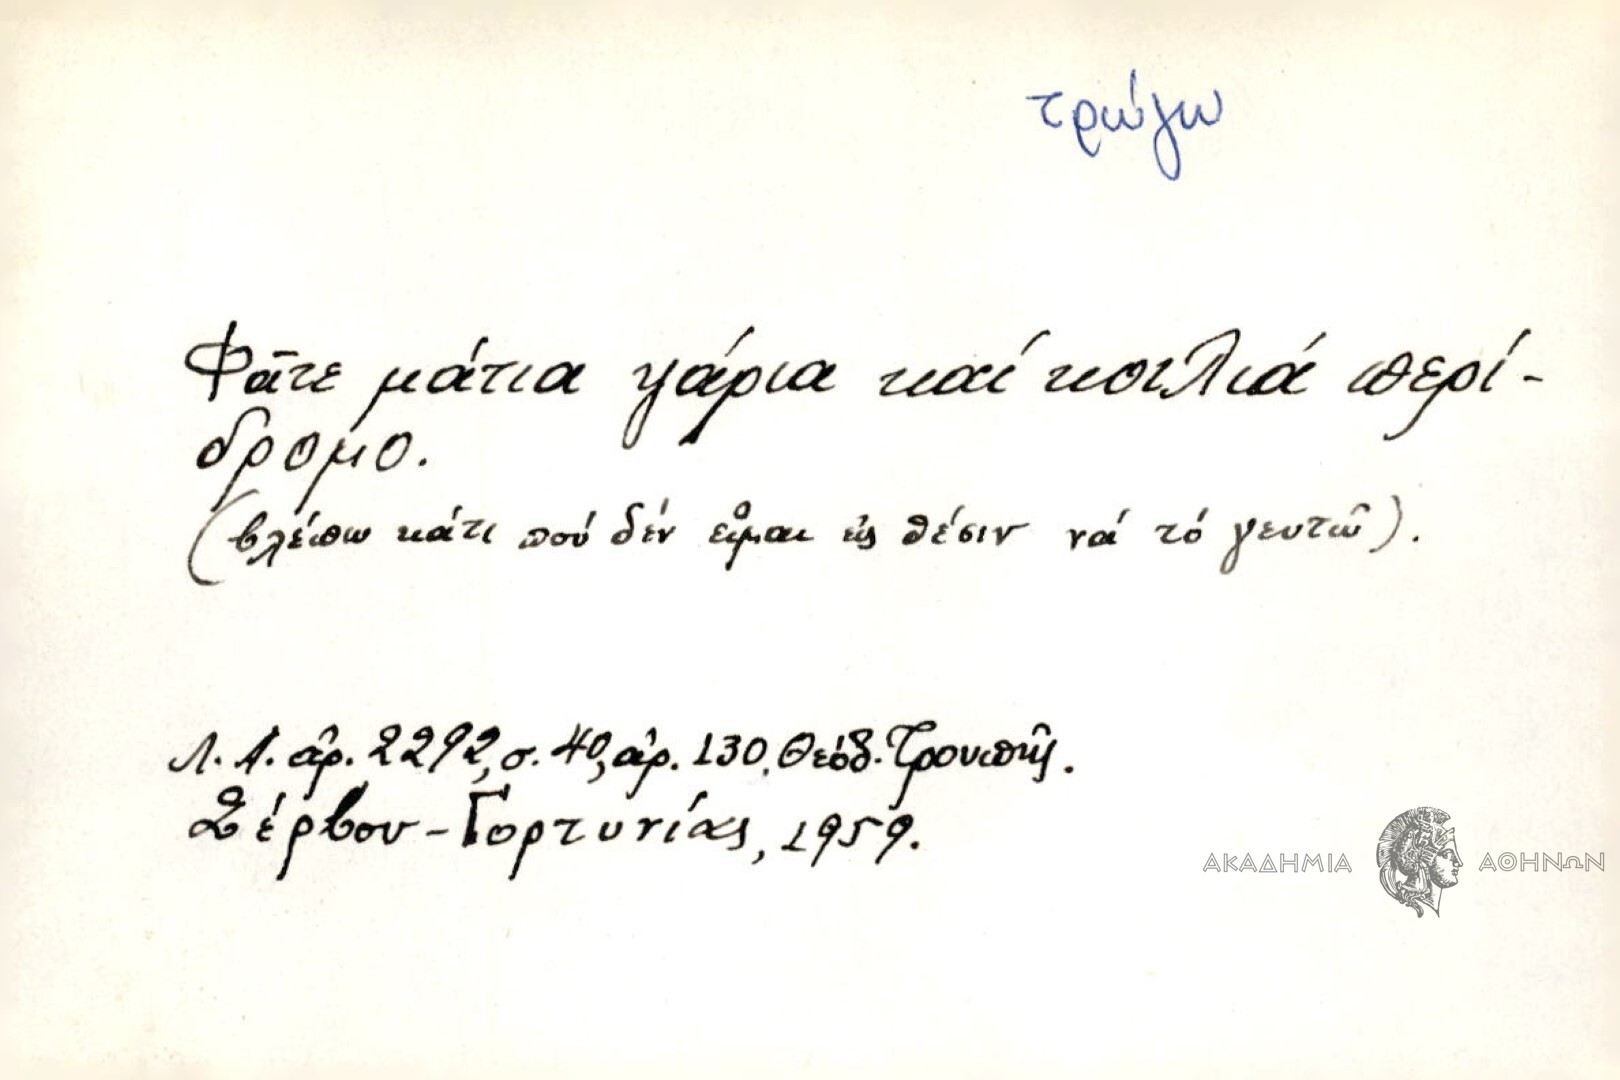 τρώγω
Φᾶτε μάτια ψάρια καί κοιλιά περί-
δρομο.
(βλέπω κάτι πού δέν εἶμαι εἰς θέσιν νά τό γευτῶ).
Λ. Α. ἀρ. 2292, σ. 40, ἀρ. 130, Θεόδ. Τρουπῆς.
Σέρβου - Γορτυνίας, 1959.
ΑΚΑΔΗΜΙΑ ΑΘΗΝΩΝ